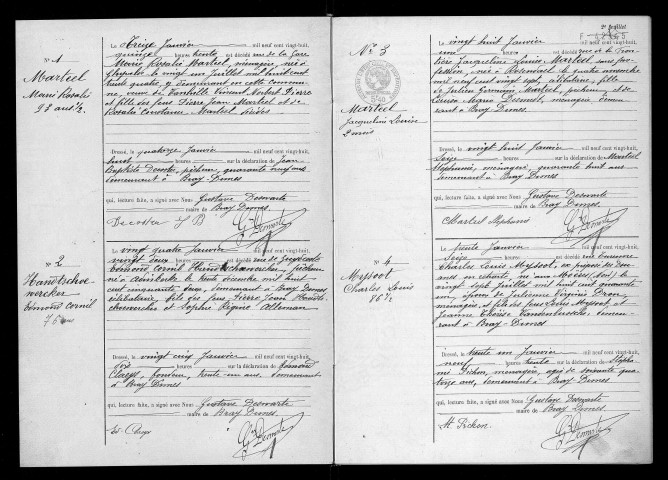 N° 1
Marteel
Marie Rosalie
93 ans ½
Le Treize Janvier mil neuf cent vingt-huit,
quinze heures trente est décédé rue de la Gare
Marie Rosalie Marteel, ménagère, née à
Ghyvelde le vingt un juillet mil huit cent
trente quatre, y demeurant en cette commune
ne, veuve de Vincent Norbert Pierre
et fille des feus Pierre Jean Marteel et de
Rosalie Constance
Dressé, le quatorze Janvier mil neuf cent vingt-huit,
huit heures sur la déclaration de Jean
Baptiste Decoster, pêcheur, quarante neuf ans
demeurant à Bray-Dunes
qui, lecture faite, a signé avec Nous Gustave Deswarte
maire de Bray Dunes.
Decoster J B
G. Deswarte
N° 2
Handtschoe
wercker
Edmond Cornil
75 ans
Le vingt quatre Janvier mil neuf cent vingt-huit,
vingt deux heures est décédé rue de
Edmond Cornil Handtschoewercker, pêcheur
né à Adinkerke le trente Décembre mil huit
cent cinquante deux, demeurant à Bray Dunes
célibataire, fils des feus Pierre Jean Handts
choewercker et Sophie Régine
Dressé, le vingt cinq Janvier mil neuf cent vingt-huit,
heures sur la déclaration de Edmond
trente un ans, demeurant
à Bray Dunes
qui, lecture faite, a signé avec Nous Gustave Deswarte
maire de Bray Dunes.
G. Deswarte
2e feuillet
N° 3
Marteel
Jacqueline Louise
Le vingt huit Janvier mil neuf cent vingt-huit,
une heures est décédée rue de la Fron
tière Jacqueline Louise Marteel, sans pro
fession, née à Rosendael le quatre novembre
mil neuf cent vingt six, célibataire, fille
de Julien Germain Marteel, pêcheur, et de
Louise Marie Desmet, ménagère demeu
rant à Bray Dunes
Dressé, le vingt huit Janvier mil neuf cent vingt-huit,
seize heures sur la déclaration de Marteel
Stéphanie, ménagère, quarante huit ans
demeurant à Bray Dunes
qui, lecture faite, a signé avec Nous Gustave Deswarte
maire de Bray Dunes.
Marteel Stéphanie
G. Deswarte
N° 4
Myssoot
Charles Louis
Le trente Janvier mil neuf cent vingt-huit,
seize heures est décédé
Charles Louis Myssoot, ex préposé des Dou
anes en retraite, né aux Moëres (Nord) le
vingt sept juillet mil huit cent quarante
un, époux de Julienne Virginie Dron,
ménagère, et fils des feus Myssoot et
Jeanne Thérèse demeu
rant à Bray-Dunes
Dressé, le trente un Janvier mil neuf cent vingt-huit,
neuf heures sur la déclaration de Stépha
nie ménagère, agée de soixante qua
torze ans, demeurant à Bray Dunes
qui, lecture faite, a signé avec Nous Gustave Deswarte
maire de Bray Dunes.
G. Deswarte